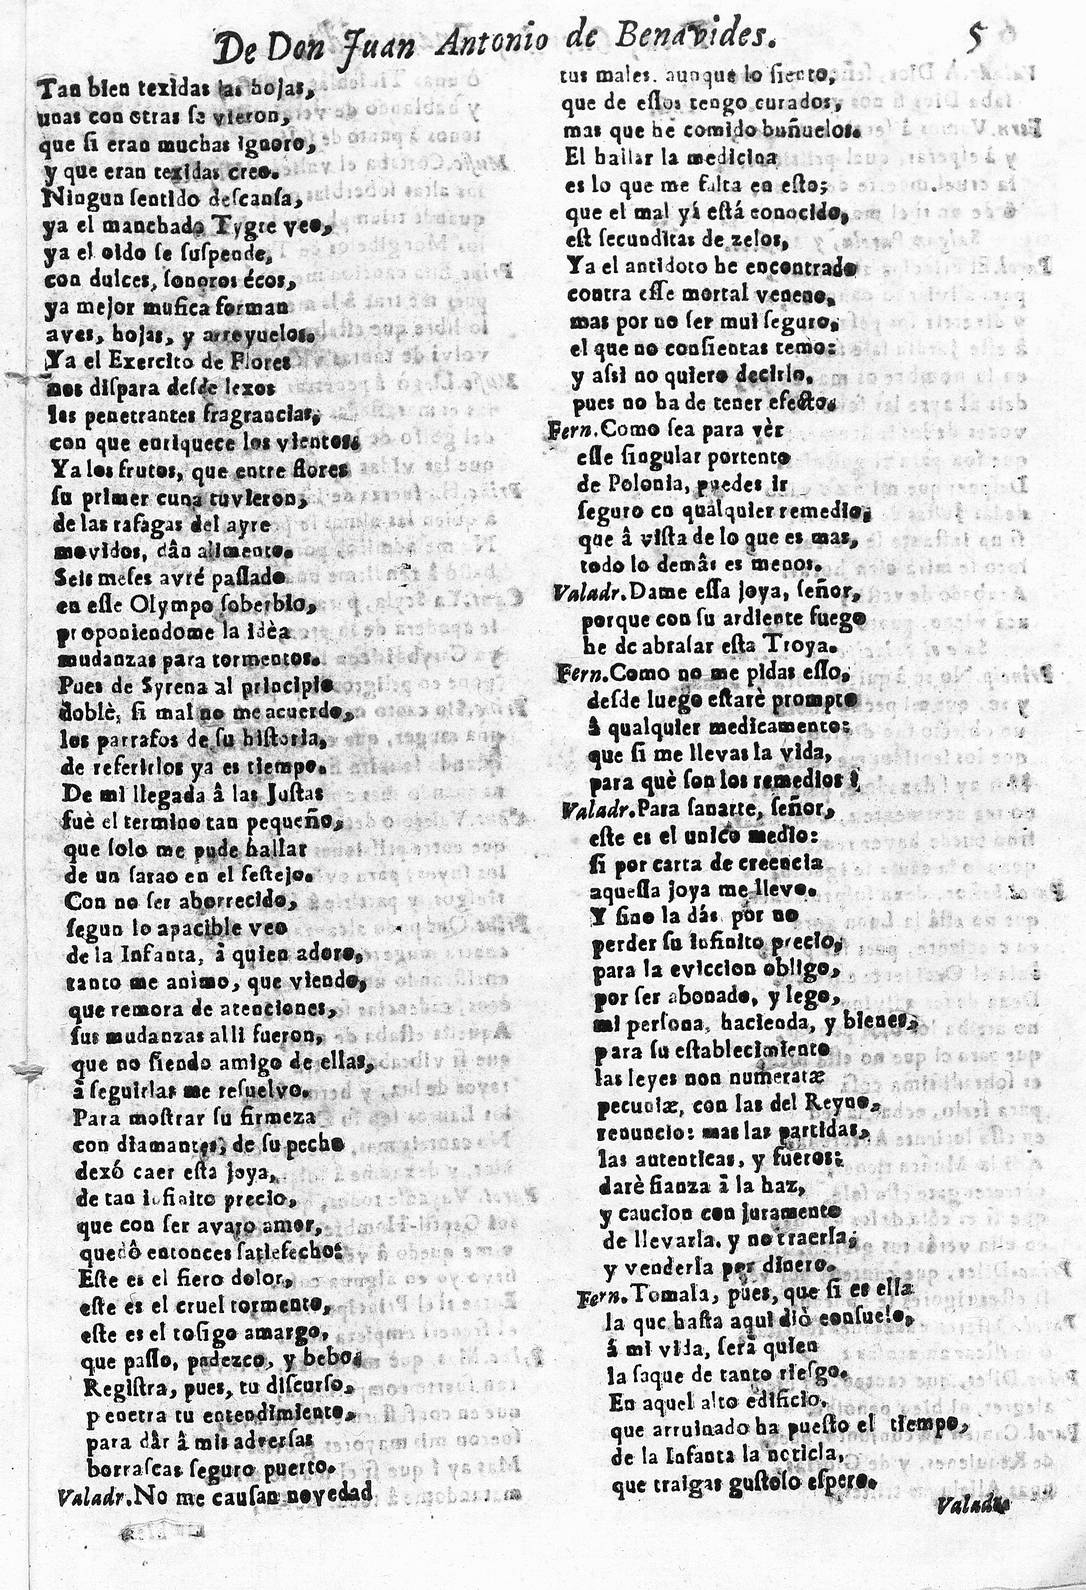 De Don Juan Antonio de Benavides. 5
Tan bien texidas las hojas,
unas con otras se vieron,
que si eran muchas ignoro,
y que eran texidas creo.
Ningun sentido descansa,
ya el manchado Tygre veo,
ya el oido se suspende,
con dulces, sonoros écos,
ya mejor musica forman
aves, hojas, y arroyuelos.
Ya el Exercito de Flores
nos dispara desde lexos
las penetrantes fragrancias,
con que enriquece los vientos.
Ya los frutos, que entre flores
su primer cuna tuvieron,
de las rafagas del ayre
movidos, dân alimento.
Seis meses avrè passado
en esse Olympo soberbio,
proponiendome la idèa
mudanzas para tormentos.
Pues de Syrena al principio
doblè, si mal no me acuerdo,
los parrafos de su historia,
de referirlos ya es tiempo.
De mi llegada â las Justas
fuè el termino tan pequeño,
que solo me pude hallar
de un sarao en el festejo.
Con no ser aborrecido,
segun lo apacible veo
de la Infanta, â quien adoro,
tanto me animo, que viendo,
que remora de atenciones,
sus mudanzas alli fueron,
que no siendo amigo de ellas,
â seguirlas me resuelvo.
Para mostrar su firmeza
con diamantes, de su pecho
dexó caer esta joya,
de tan infinito precio,
que con ser avaro amor,
quedô entonces satisfecho:
Este es el fiero dolor,
este es el cruel tormento,
este es el tosigo amargo,
que passo, padezco, y bebo;
Registra, pues, tu discurso,
penetra tu entendimiento,
para dâr â mis adversas
borrascas seguro puerto.
Valadr. No me causan novedad
tus males, aunque lo siento,
que de estos tengo curados,
mas que he comido buñuelos.
El hallar la medicina
es lo que me falta en esto;
que el mal yá está conocido,
est secunditas de zelos,
Ya el antidoto he encontrado
contra esse mortal veneno,
mas por no ser mui seguro,
el que no consientas temo:
y assi no quiero decirlo,
pues no ha de tener efecto.
Fern. Como sea para vèr
esse singular portento
de Polonia, puedes ir
seguro en qualquier remedio;
que â vista de lo que es mas,
todo lo demâs es menos.
Valadr. Dame essa joya, señor,
porque con su ardiente fuego
he de abrasar esta Troya.
Fern. Como no me pidas esso,
desde luego estarè prompto
â qualquier medicamento:
que si me llevas la vida,
para què son los remedios?
Valadr. Para sanarte, señor,
este es el unico medio:
si por carta de creencia
aquessa joya me llevo.
Y sino la dás, por no
perder su infinito precio,
para la eviccion obligo,
por ser abonado, y lego,
mi persona, hacienda, y bienes,
para su establecimiento
las leyes non numeratæ
pecuniæ, con las del Reyno,
renuncio: mas las partidas,
las autenticas, y fueros:
darè fianza â la haz,
y caucion con juramento
de llevarla, y no traerla;
y venderla por dinero.
Fern. Tomala, pues, que si es ella
la que hasta aqui diò consuelo,
â mi vida, serà quien
la saque de tanto riesgo.
En aquel alto edificio,
que arruinado ha puesto el tiempo,
de la Infanta la noticia,
que traigas gustoso espero.
Valadr.